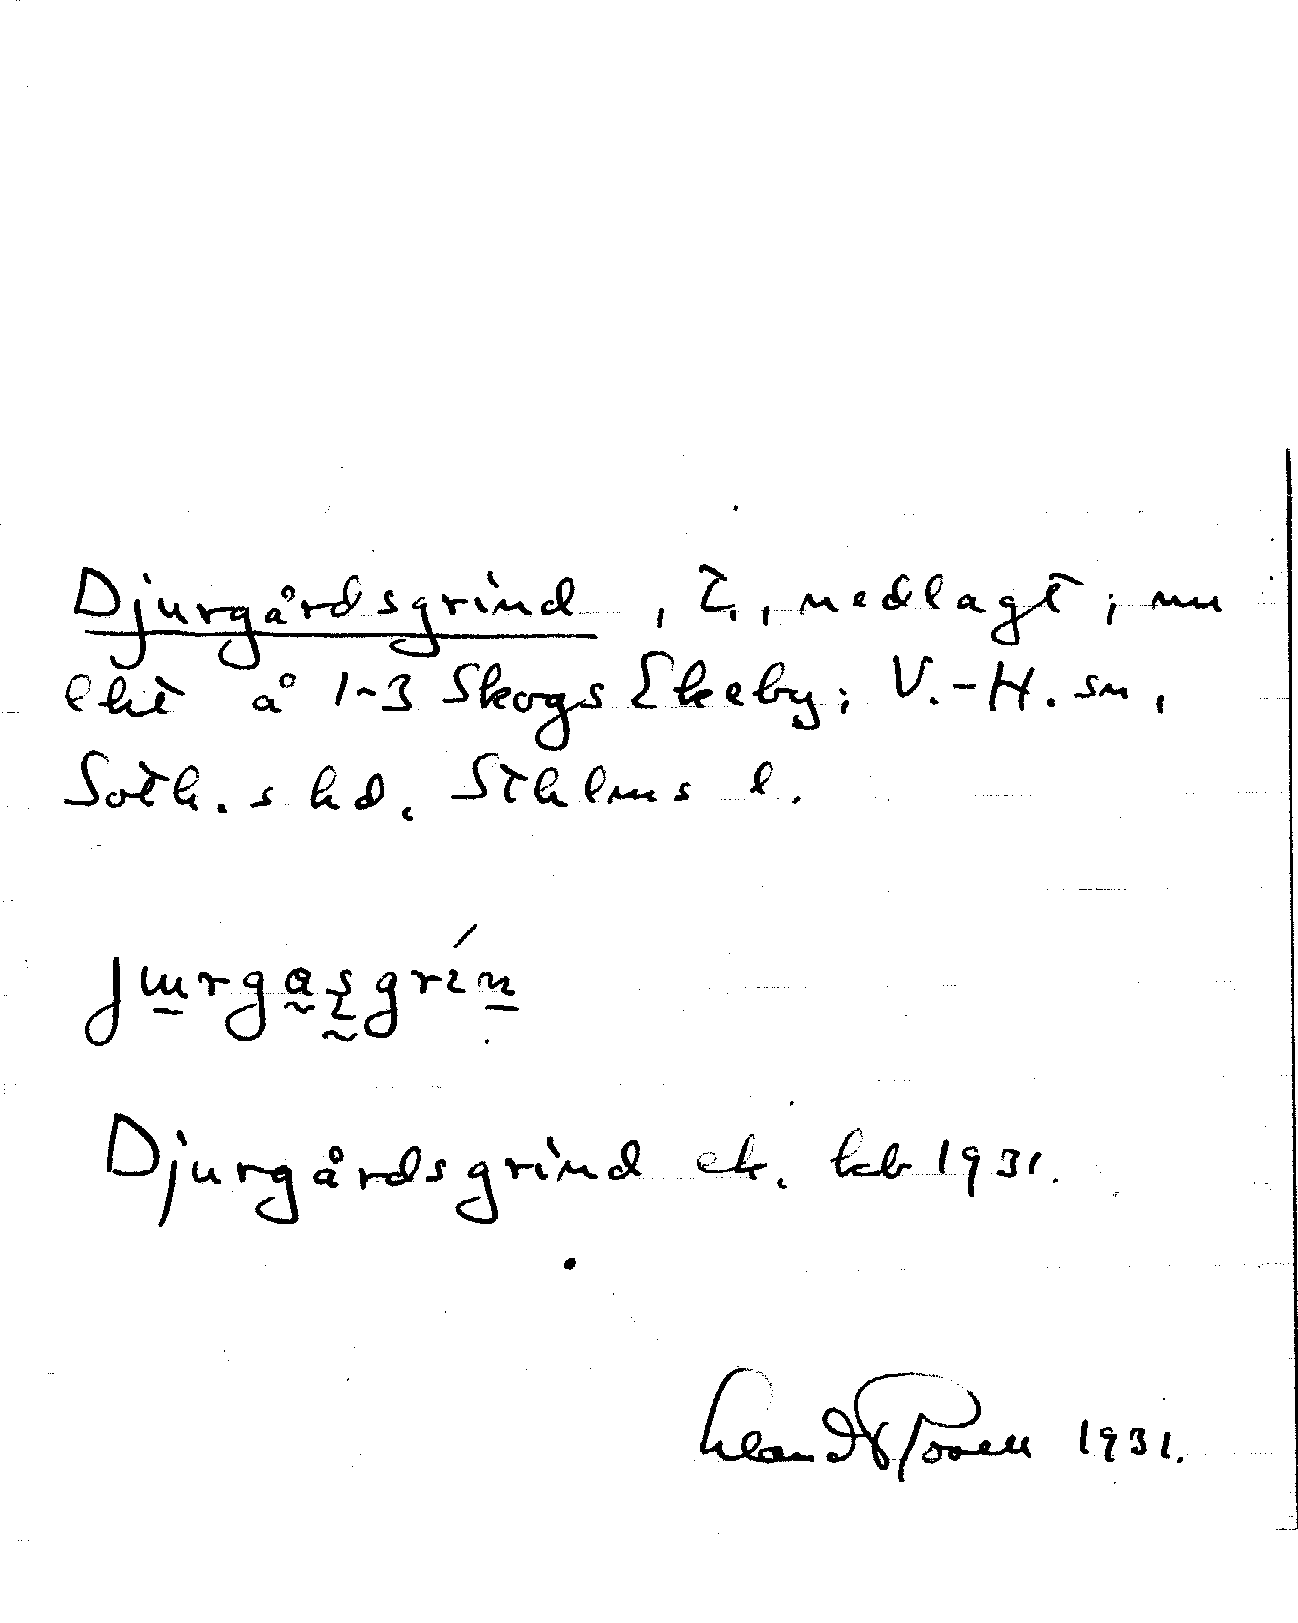 Djurgårdsgrind, t., nedlagt; nu
eht å 1-3 Skogs Ekeby; V.-H. sn,
Soth.s hd. Sthlms l.
jɯrgasgrín
Djurgårdsgrind ek. kb 1931.
1931.